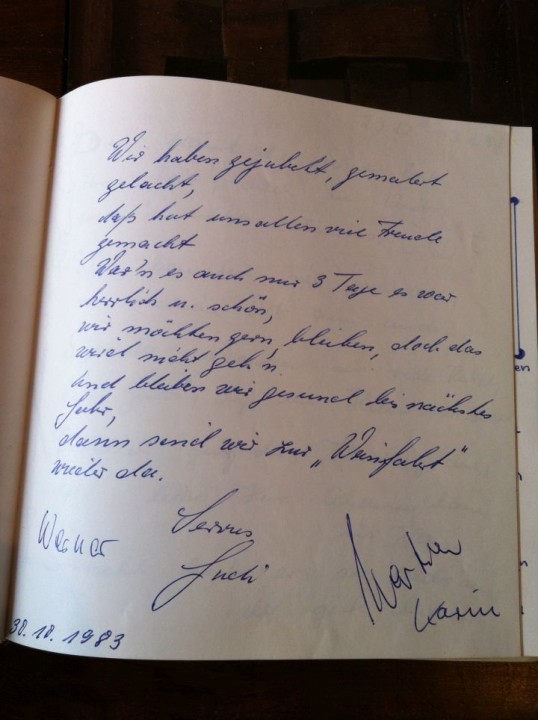 Wir haben gejubelt, gemalert
gelacht,
daß hat uns allen viel Freude
gemacht
War'n es auch nur 3 Tage es war
herrlich u. schön,
wir möchten gern, bleiben, doch das
wird nicht geh'n.
und bleiben wir gesund bis nächstes
Jahr,
dann sind wir zur „Weinfahrt"
wieder da.
Servus
Werner
Karin
30.10.1983
en